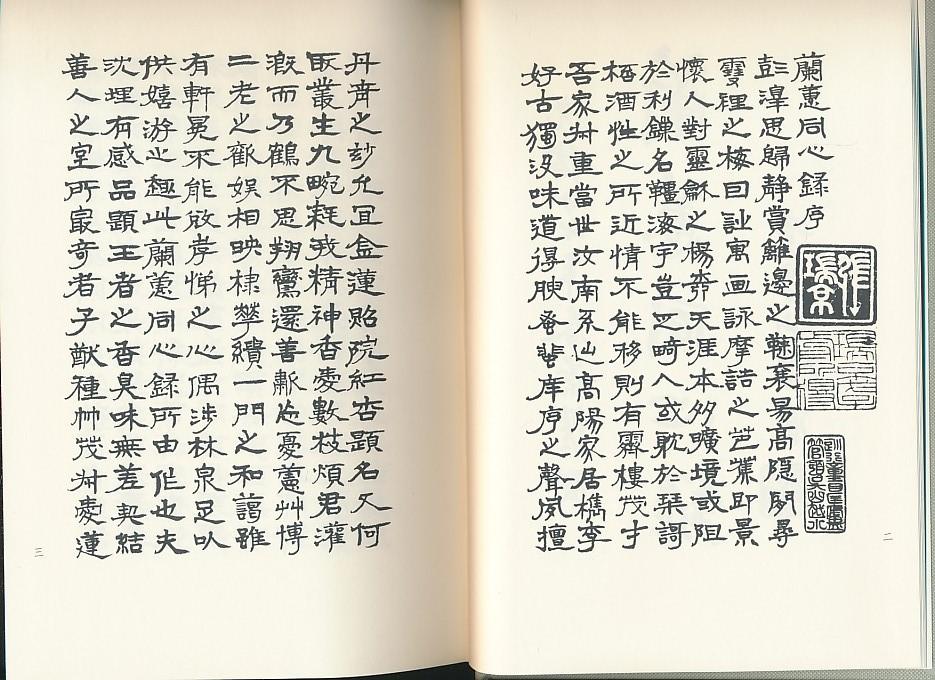 蘭蕙同心錄序
彭澤思歸靜賞籬邊之鞠襄昜高隱閑尋
雪裡之梅曰訨寓画詠摩詰之芭蕉即景
懷人對靈龢之楊奔天涯本多曠境或阻
於利鏁名韁海宇豈乏畸人或躭於琹謌
栖酒性之所近情不能移則有霽樓茂才
吾家艸重當世汝南系辿高陽家居檇李
好古獨没味道得腴蚤蜚庠序之聲夙擅
丹青之玅允宜金蓮貽院紅杏題名又何
取叢生九畹耗我精神香橐數枝煩君灌
溉而乃鶴不思翔鸞還善斵芘憂蕙艸博
二老之歡娛相映棣華纘一門之和藹雖
有軒冕不能敚孝悌之心偶涉林泉足㕥
供嬉游之趣此蘭蕙同心錄所由作也夫
沈埋有感品題王者之香臭味無差契結
善人之室所㝡奇者子猷種竹茂艸橐蓮
二
三